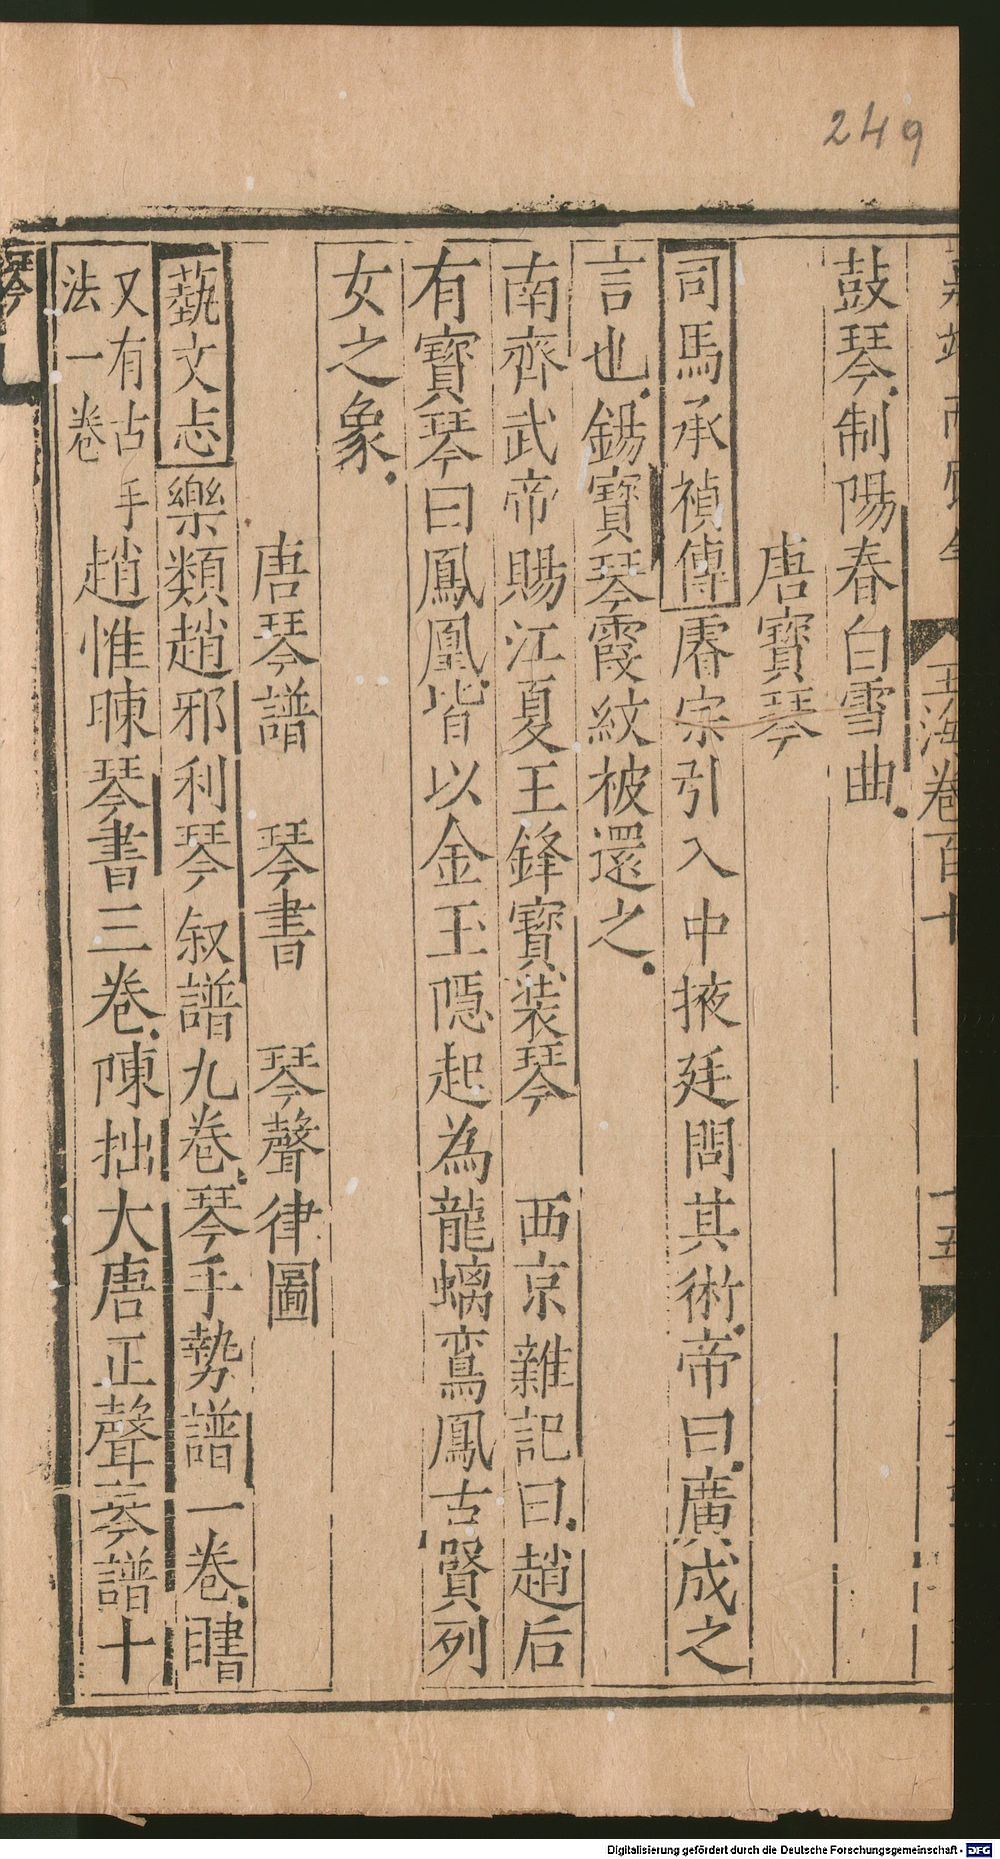 249
玉海卷百十
十五
鼓琴制陽春白雪曲
唐寶琴
司馬承禎傳睿宗引入中掖廷問其術帝曰廣成之
言也錫寶琴霞紋被還之
南齊武帝賜江夏王鋒寶裝琴 西京雜記曰趙后
有寶琴曰鳳凰皆以金玉隱起為龍螭鸞鳳古賢列
女之象
唐琴譜 琴書 琴聲律圖
藝文志樂類趙邪利琴叙譜九卷琴手勢譜一卷
又有古手
法一卷
趙惟暕琴書三卷陳拙大唐正聲琴譜十
琴
Digitalisierung gefördert durch die Deutsche Forschungsgemeinschaft - DFG